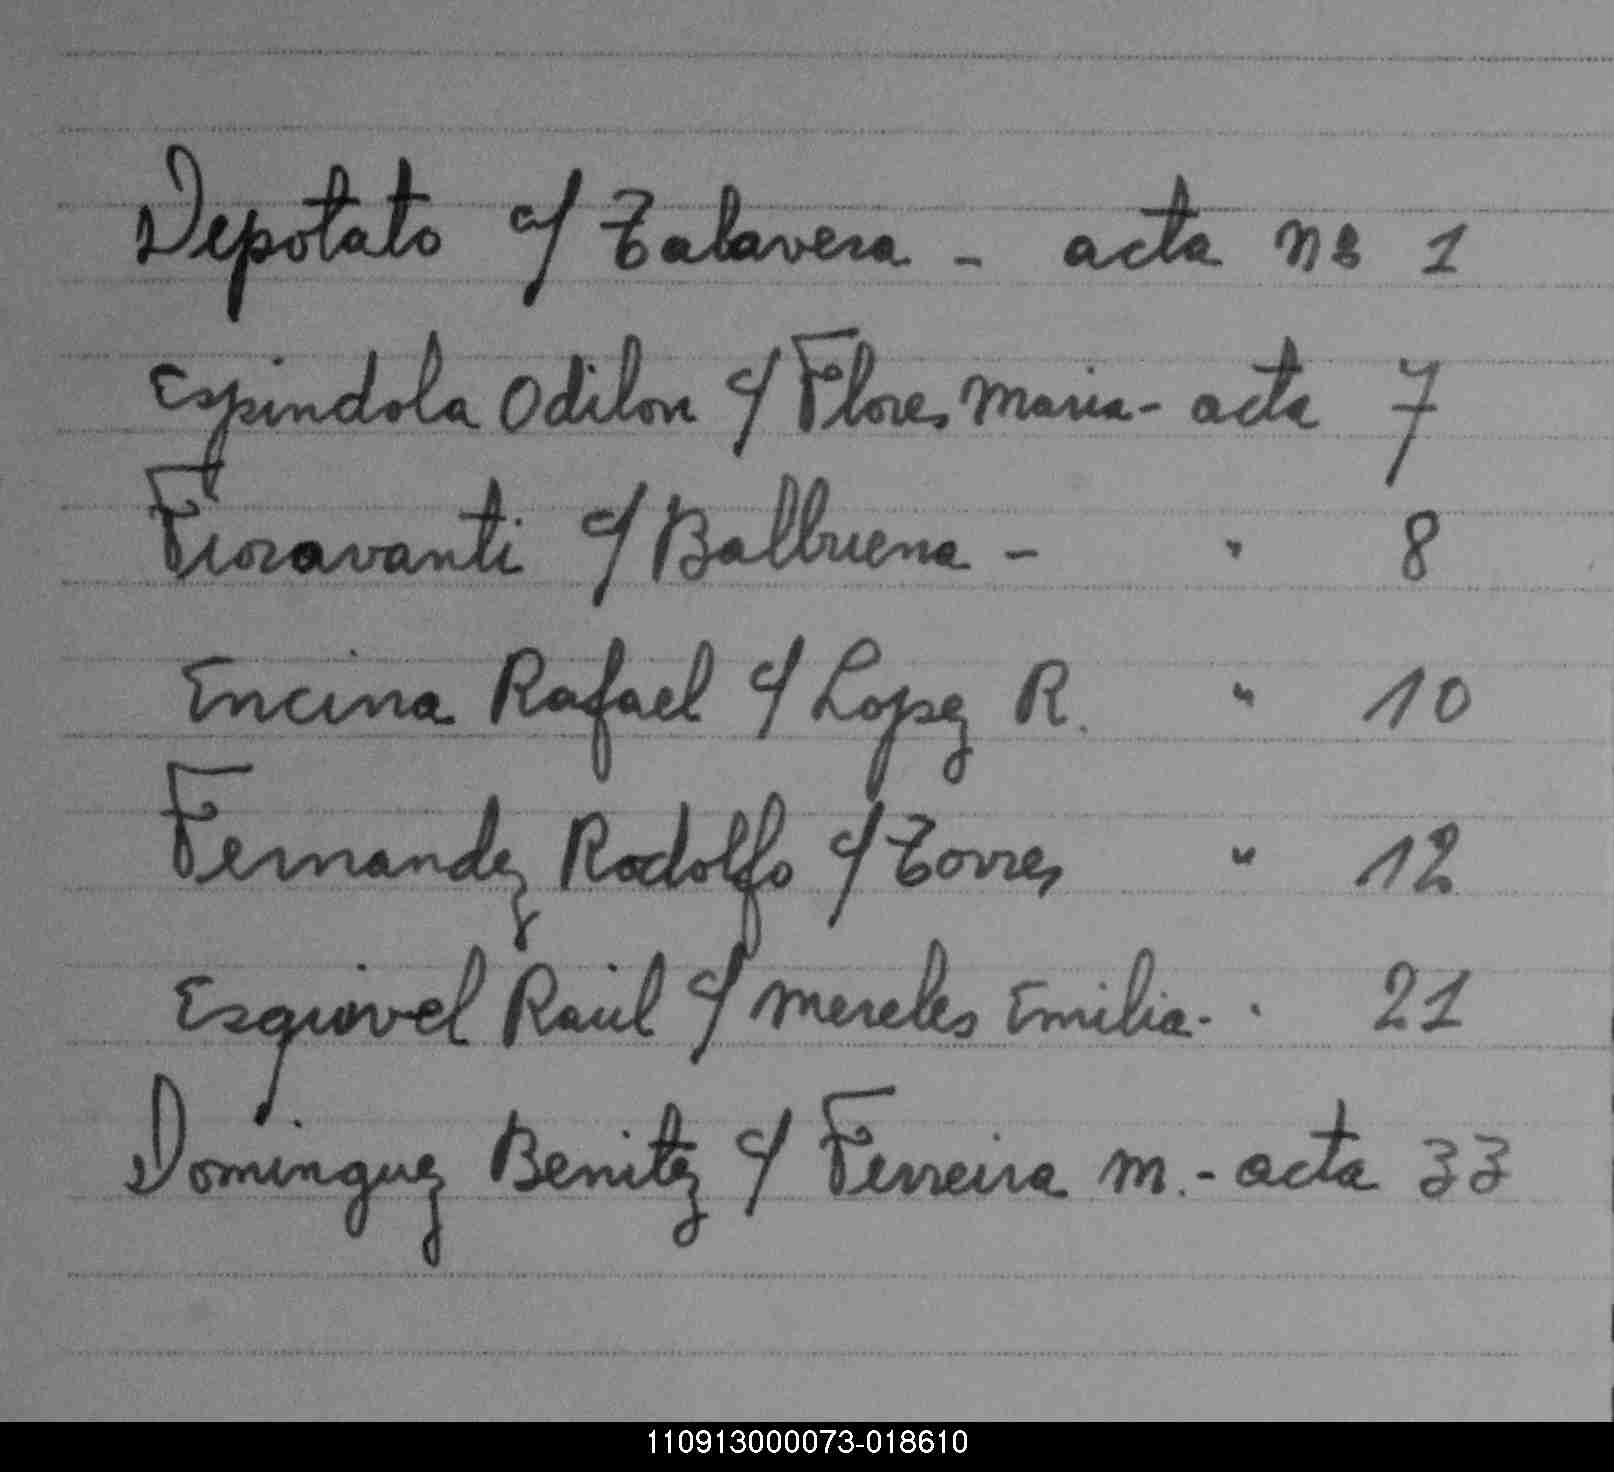 Depotato c/ Talavera - acta Nº 1
Espindola Odilon c/ Flores Maria - acta 7
Fioravanti c/ Balbuena - " 8
Encina Rafael c/ Lopez R. " 10
Fernandez Rodolfo c/ Torres " 12
Esquivel Raúl c/ Mereles Emilia - " 21
Dominguez Benitez c/ Ferreira M. - acta 33
110913000073-018610